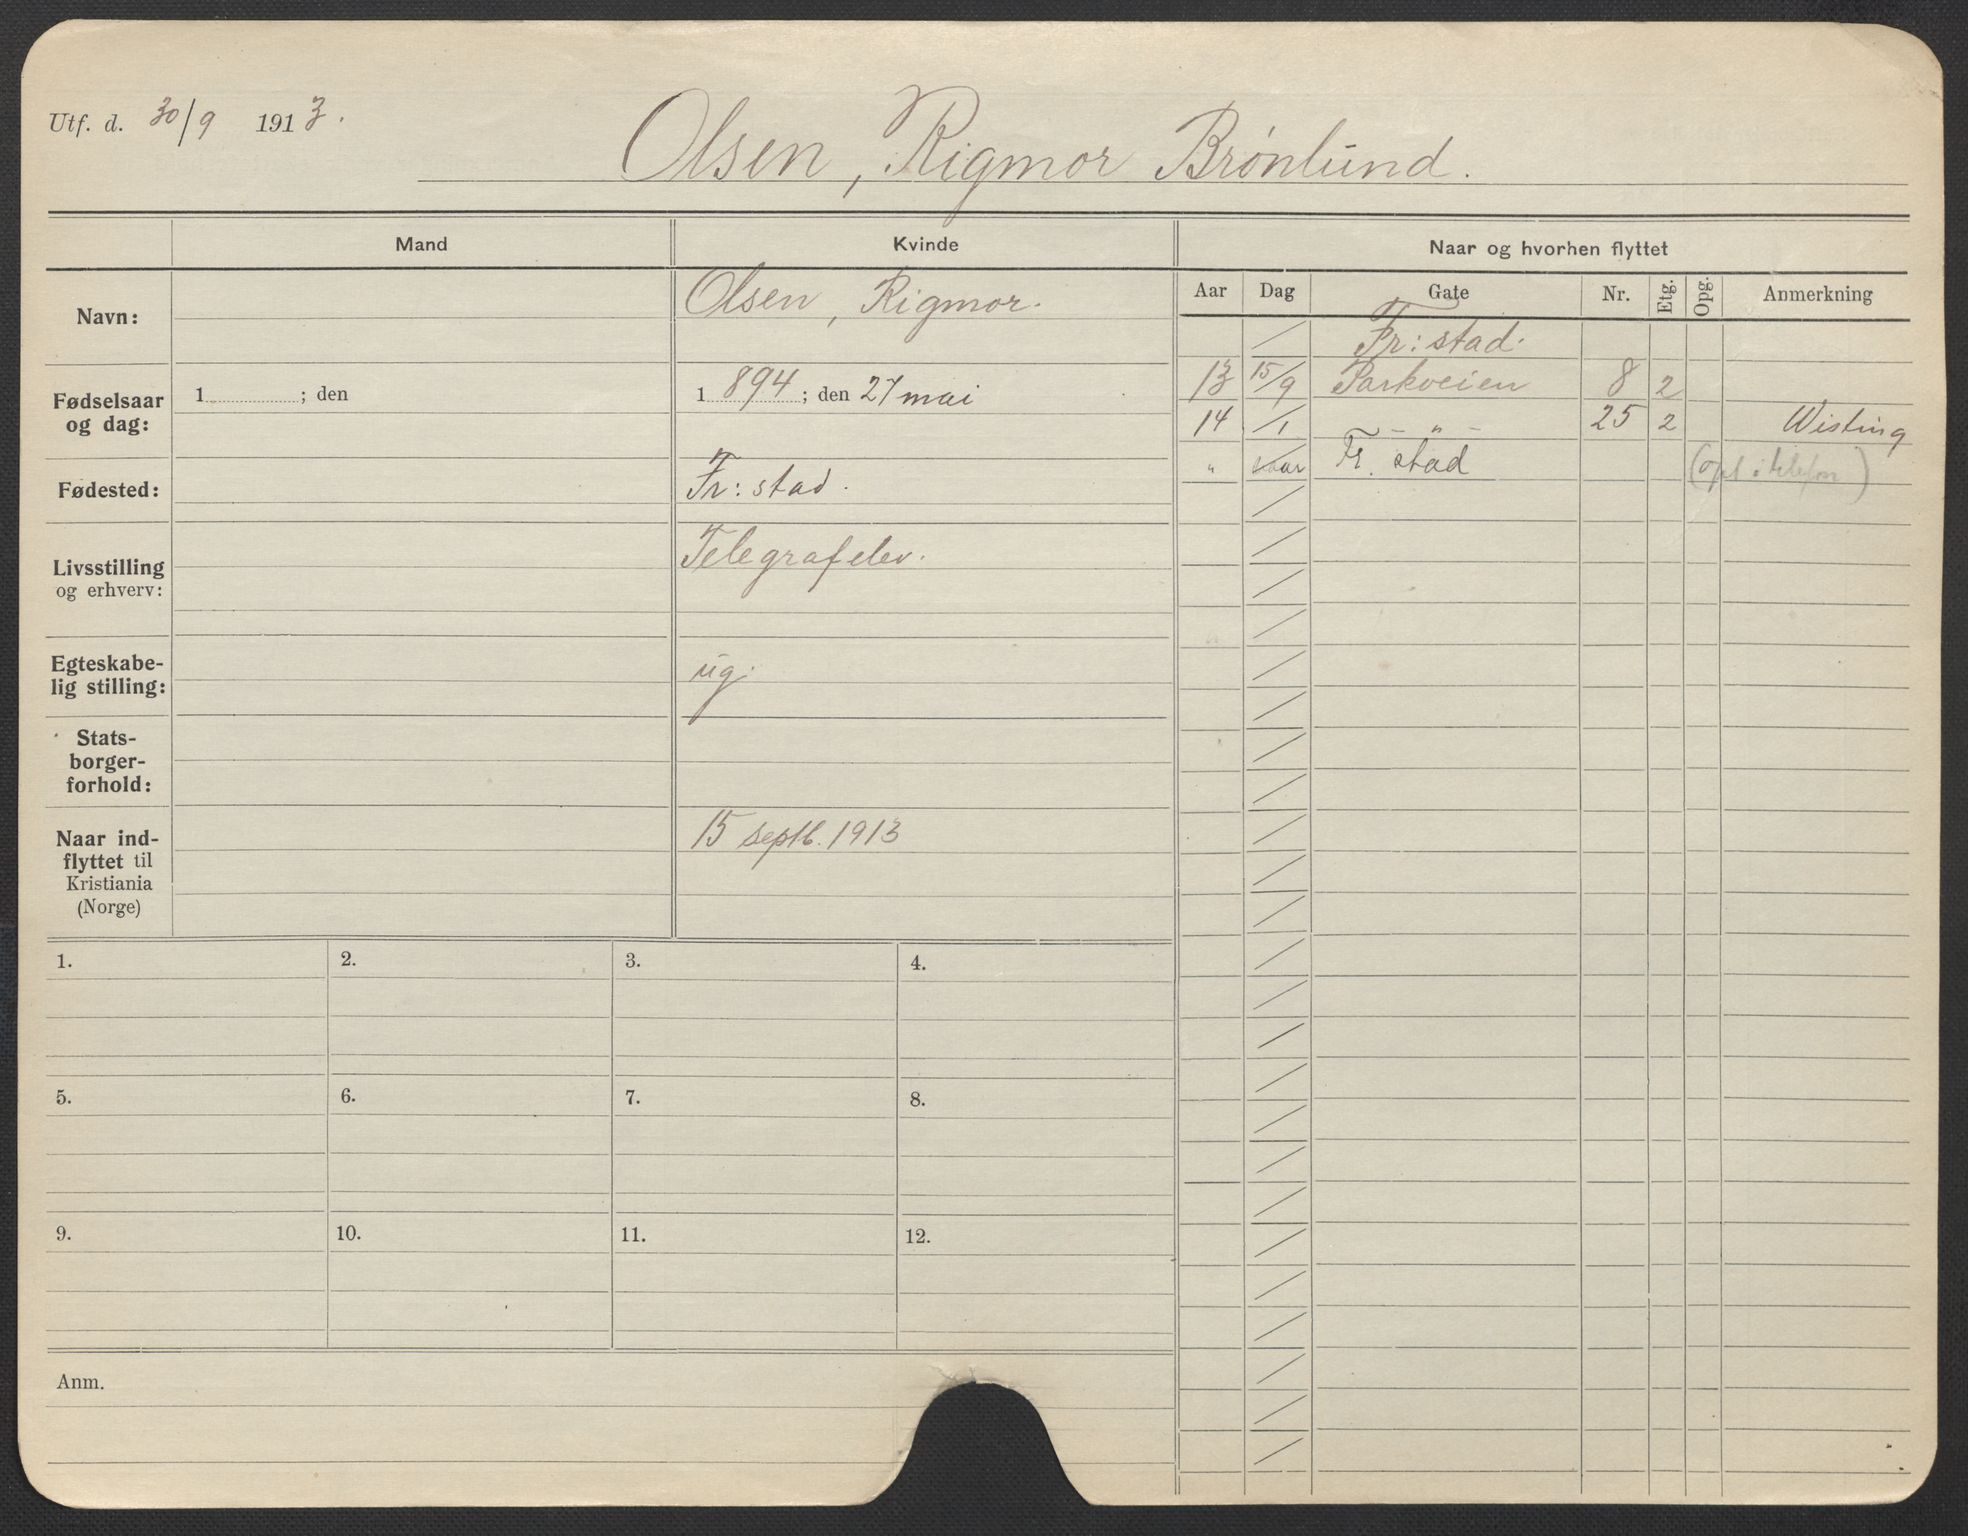 Utf. d. 30/9 1913.
Olsen, Rigmor Brønlund.
Mand
Kvinde
Naar og hvorhen flyttet
Aar Dag Gate Nr. Etg. Opg. Anmerkning
Navn:
Olsen, Rigmor.
Fødselsaar
og dag:
1 ; den
1 894 ; den 27 mai
Fødested:
Fr: stad.
Livsstilling
og erhverv:
Telegrafelev.
Egteskabe-
lig stilling:
ug.
Stats-
borger-
forhold:
Naar ind-
flyttet til
Kristiania
(Norge)
15 septb. 1913
Fr: stad.
13 15/9 Parkveien 8 2
14 /1 - „ - 25 2 Wisting
„ Fr. stad (opl. i telefon)
1.
2.
3.
4.
5.
6.
7.
8.
9.
10.
11.
12.
Anm.